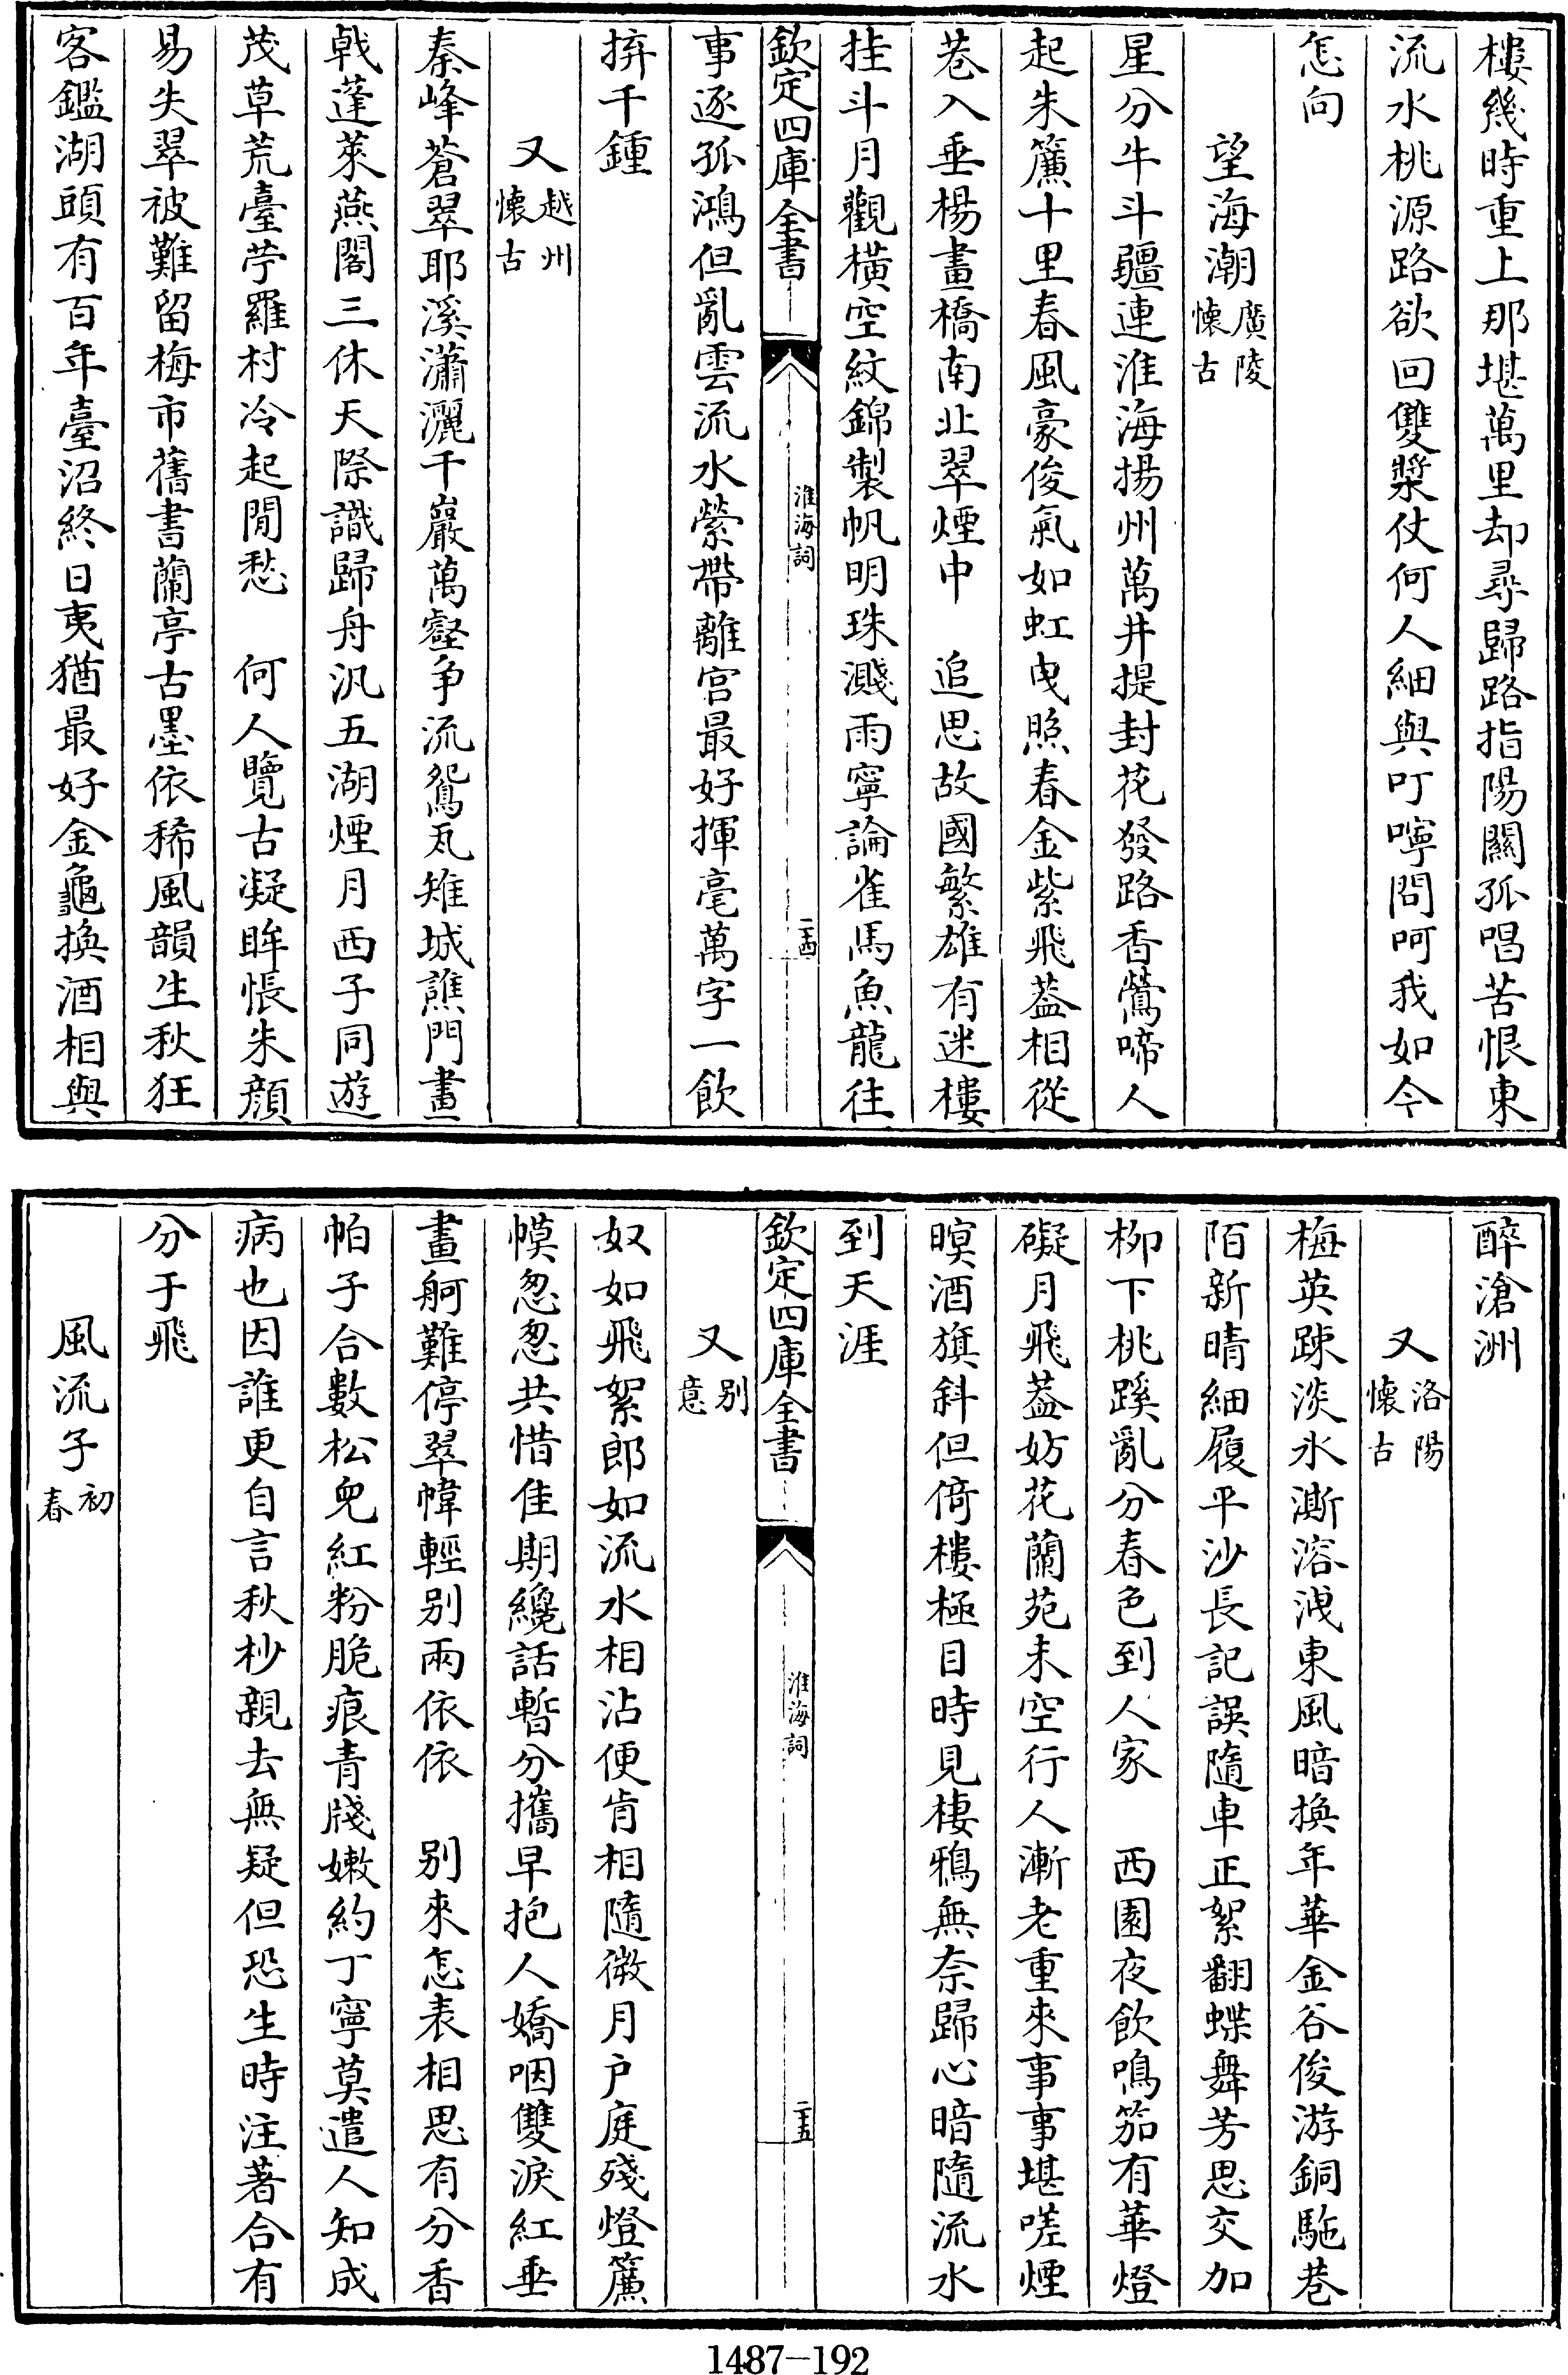 樓幾時重上那堪萬里却尋歸路指陽關孤唱苦恨東
流水桃源路欲回雙槳仗何人細與叮嚀問呵我如今
怎向
望海潮廣陵懷古
星分牛斗疆連淮海揚州萬井提封花發路香鶯啼人
起朱簾十里春風豪俊氣如虹曳照春金紫飛葢相從
巷入垂楊畫橋南北翠煙中　追思故國繁雄有迷樓
挂斗月觀橫空紋錦製帆明珠濺雨寧論雀馬魚龍往
欽定四庫全書
淮海詞
二十四
事逐孤鴻但亂雲流水縈帶離宫最好揮毫萬字一飲
拚千鍾
又越州懷古
秦峰蒼翠耶溪瀟灑千巖萬壑争流鴛瓦雉城譙門畫
戟蓬萊燕閣三休天際識歸舟汎五湖煙月西子同遊
茂草荒臺苧羅村冷起閒愁　何人覽古凝眸悵朱顔
易失翠被難留梅市舊書蘭亭古墨依稀風韻生秋狂
客鑑湖頭有百年臺沼終日夷猶最好金龜換酒相與
醉滄洲
又洛陽懷古
梅英疎淡氷澌溶洩東風暗換年華金谷俊游銅駞巷
陌新晴細履平沙長記誤隨車正絮翻蝶舞芳思交加
柳下桃蹊亂分春色到人家　西園夜飲鳴笳有華燈
礙月飛葢妨花蘭苑未空行人漸老重來事事堪嗟煙
暝酒旗斜但倚樓極目時見棲鴉無奈歸心暗隨流水
到天涯
欽定四庫全書
淮海詞
二十五
又别意
奴如飛絮郎如流水相沾便肯相隨微月户庭殘燈簾
幙怱怱共惜佳期纔話暫分攜早抱人嬌咽雙淚紅垂
畫舸難停翠幃輕别兩依依　别來怎表相思有分香
帕子合數松兒紅粉脆痕青牋嫩約丁寧莫遣人知成
病也因誰更自言秋杪親去無疑但恐生時注著合有
分于飛
風流子初春
1487—192